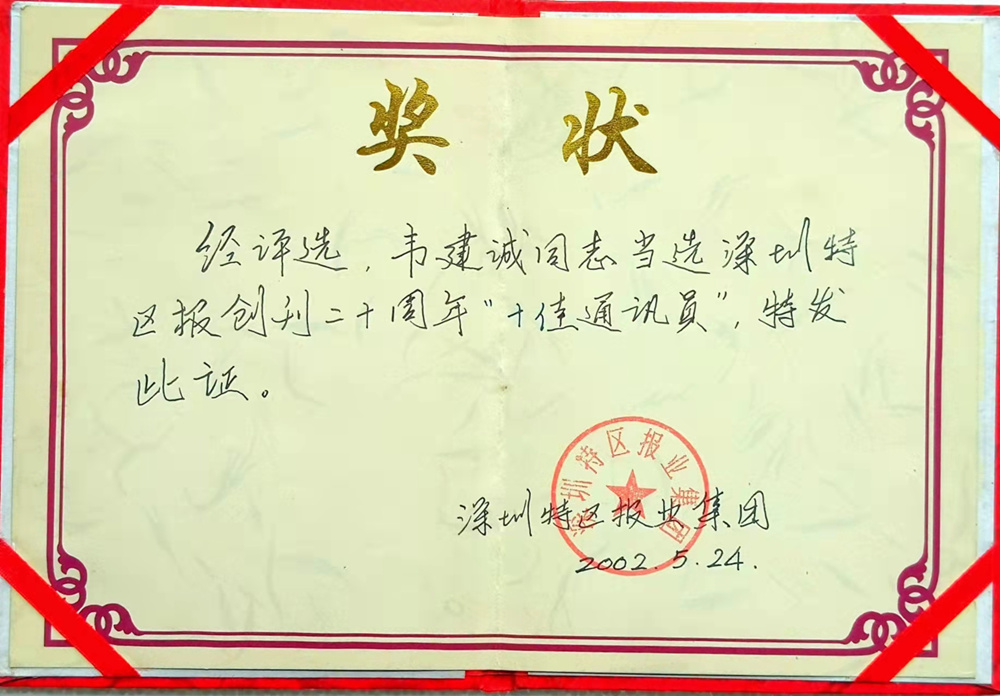 奖状
经评选，韦建诚同志当选深圳特
区报创刊二十周年“十佳通讯员”，特发
此证。
深圳特区报业集团
深圳特区报业集团
2002.5.24.